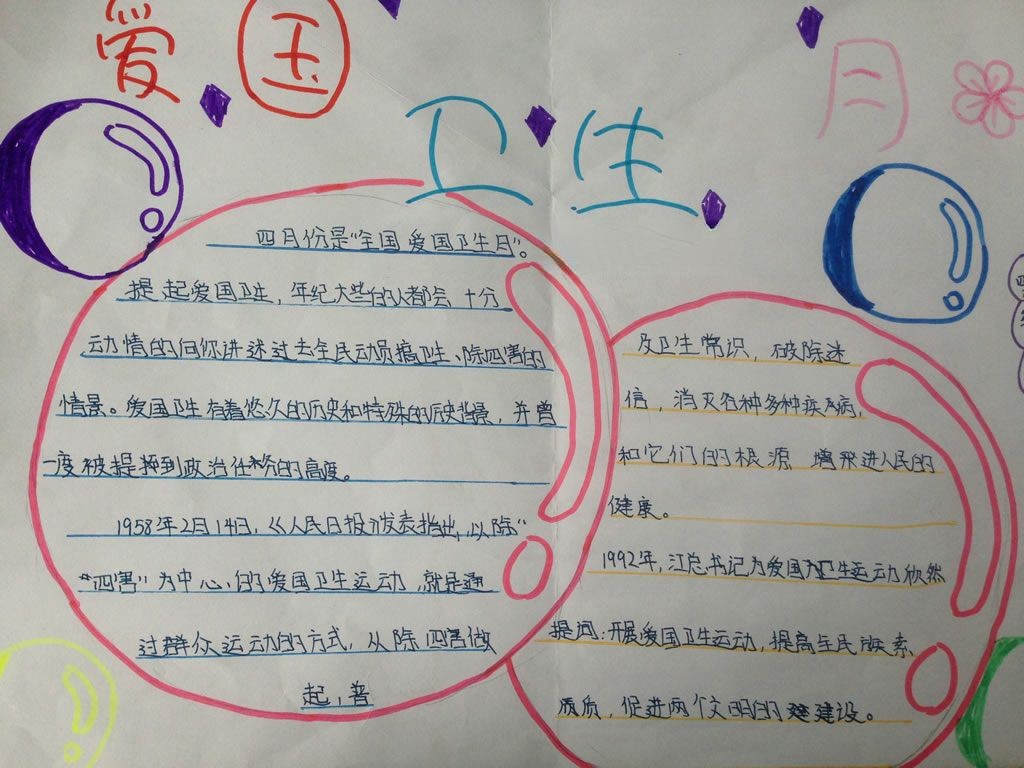 爱国
卫生
月
四月份是“全国爱国卫生月”。
提起爱国卫生，年纪大些的人都会十分
动情的向你讲述过去全民动员搞卫生、除四害的
情景。爱国卫生有着悠久的历史和特殊的历史背景，并曾
一度被提升到政治任务的高度。
1958年2月14日，《人民日报》发表指出，以除“
“四害”为中心的爱国卫生运动，就是通
过群众运动的方式，从除四害做
起，普
及卫生常识，破除迷
信，消灭各种多种疾病，
和它们的根源 增进人民的
健康。
1992年，江总书记为爱国卫生运动欣然
提词：开展爱国卫生运动，提高全民族素
质，促进两个文明的建设。
四